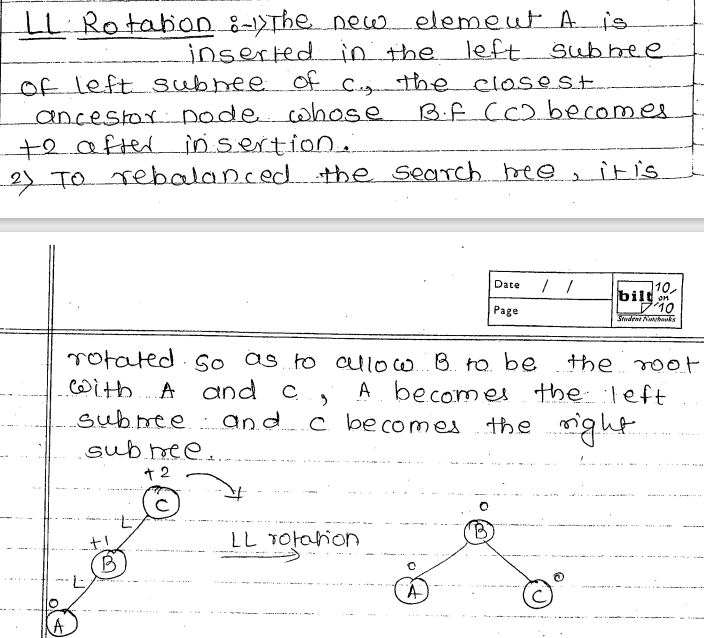 LL Rotation :-1) The new element A is
inserted in the left subtree
of left subtree of C., the closest
ancestor node whose B.F (C) becomes
+2 after insertion.
2) To rebalanced the search tree, it is
Date / /
Page
bilt 10 on 10
Student Notebooks
rotated so as to allow B to be the root
with A and C, A becomes the left
subtree and C becomes the right
subtree.
+2
C
L
+1
B
L
0
A
LL rotation
0
B
0
A
0
C